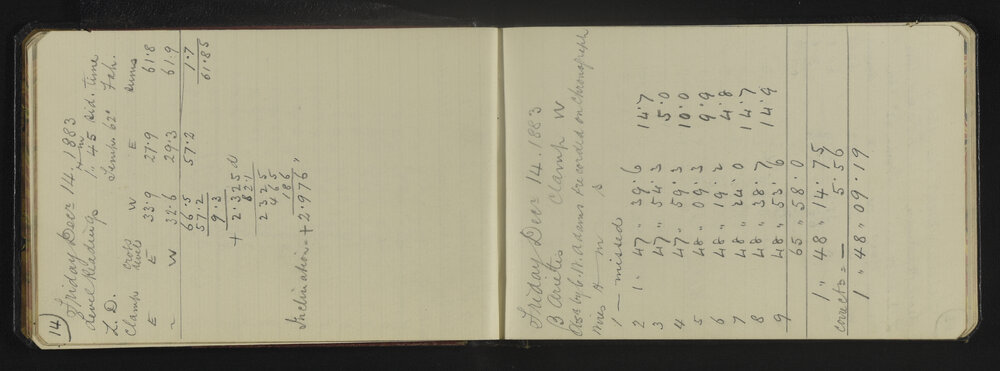 14
Friday Decr 14. 1883
Level Readings h m 1. 45 Sid. Time
L. D. Temp. 62° Fah.
Clamp Cross Level W E Sums
E E 33.9 27.9 61.8
" W 32.6 29.3 61.9
66.5 57.2 1.7
57.2 61.85
9.3
+ 2.325 d
82.1
2325
465
186
Inclination = + 2.976 "
Friday Decr 14. 1883
B Arietis Clamp W
Obsd by C. W. Adams recorded on Chronograph
Wires h m s
1 — missed
2 1 " 47 " 39.6 14.7
3 47 " 54.3 5.0
4 47 " 59.3 10.0
5 48 " 09.3 9.9
6 48 " 19.2 4.8
7 48 " 24.0 14.7
8 48 " 38.7 14.9
9 48 " 53.6
65 " 58.0
1 " 48 " 14.75
correctn = — 5.56
1 " 48 " 09.19